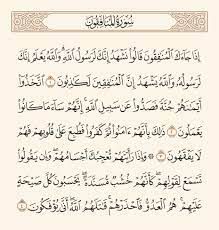 سُورَةُ المُنَافِقُونَ
إِذَا جَآءَكَ ٱلْمُنَٰفِقُونَ قَالُوا۟ نَشْهَدُ إِنَّكَ لَرَسُولُ ٱللَّهِ وَٱللَّهُ يَعْلَمُ إِنَّكَ
لَرَسُولُهُۥ وَٱللَّهُ يَشْهَدُ إِنَّ ٱلْمُنَٰفِقِينَ لَكَٰذِبُونَ ١ ٱتَّخَذُوٓا۟
أَيْمَٰنَهُمْ جُنَّةً فَصَدُّوا۟ عَن سَبِيلِ ٱللَّهِ إِنَّهُمْ سَآءَ مَا كَانُوا۟
يَعْمَلُونَ ٢ ذَٰلِكَ بِأَنَّهُمْ ءَامَنُوا۟ ثُمَّ كَفَرُوا۟ فَطُبِعَ عَلَىٰ قُلُوبِهِمْ فَهُمْ
لَا يَفْقَهُونَ ٣ وَإِذَا رَأَيْتَهُمْ تُعْجِبُكَ أَجْسَامُهُمْ وَإِن يَقُولُوا۟
تَسْمَعْ لِقَوْلِهِمْ كَأَنَّهُمْ خُشُبٌ مُّسَنَّدَةٌ يَحْسَبُونَ كُلَّ صَيْحَةٍ
عَلَيْهِمْ هُمُ ٱلْعَدُوُّ فَٱحْذَرْهُمْ قَٰتَلَهُمُ ٱللَّهُ أَنَّىٰ يُؤْفَكُونَ ٤